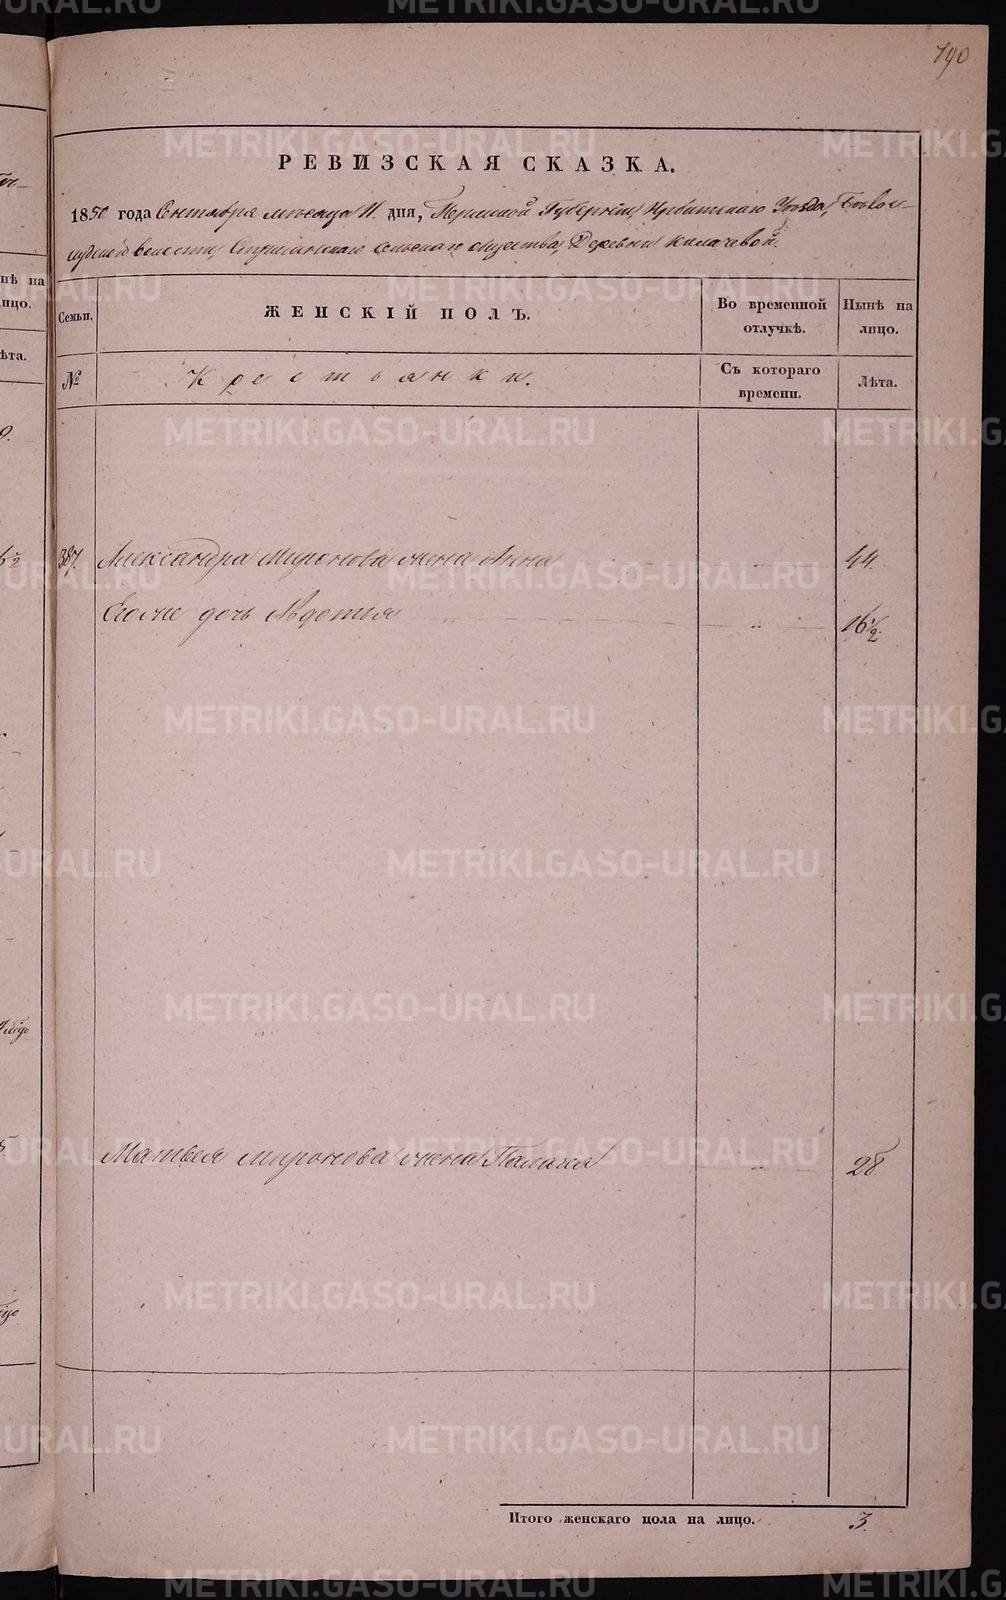 190
РЕВИЗСКАЯ СКАЗКА.
1850 года Сентября месяца 11 дня, Пермской Губерніи, Ирбитскаго Уѣзда,
волости, сельскаго общества, Деревни Калачевой.
Семьи.
ЖЕНСКІЙ ПОЛЪ.
Во временной отлучкѣ.
Нынѣ на лицо.
№
Крестьянки.
Съ котораго времени.
Лѣта.
387. Александра Миронова жена Анна " 44.
Его же дочь Авдотья " 16½.
Матвея Миронова жена Палагея " 28.
Итого женскаго пола на лицо. 3.
METRIKI.GASO-URAL.RU